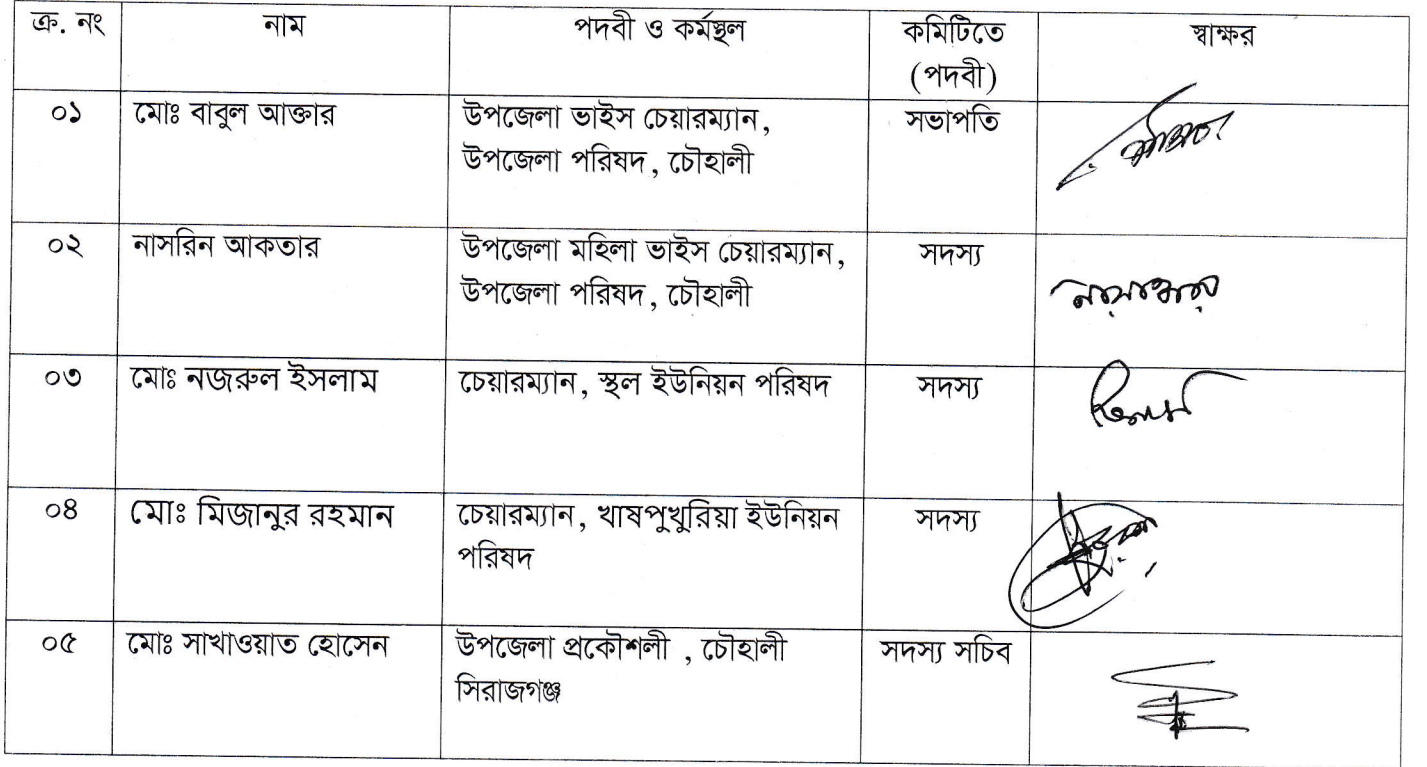 ক্র. নং নাম পদবী ও কর্মস্থল কমিটিতে স্বাক্ষর
(পদবী)
০১ মোঃ বাবুল আক্তার উপজেলা ভাইস চেয়ারম্যান, সভাপতি
উপজেলা পরিষদ, চৌহালী
০২ নাসরিন আকতার উপজেলা মহিলা ভাইস চেয়ারম্যান, সদস্য
উপজেলা পরিষদ, চৌহালী
০৩ মোঃ নজরুল ইসলাম চেয়ারম্যান, স্থল ইউনিয়ন পরিষদ সদস্য
০৪ মোঃ মিজানুর রহমান চেয়ারম্যান, খাষপুখুরিয়া ইউনিয়ন সদস্য
পরিষদ
০৫ মোঃ সাখাওয়াত হোসেন উপজেলা প্রকৌশলী , চৌহালী সদস্য সচিব
সিরাজগঞ্জ